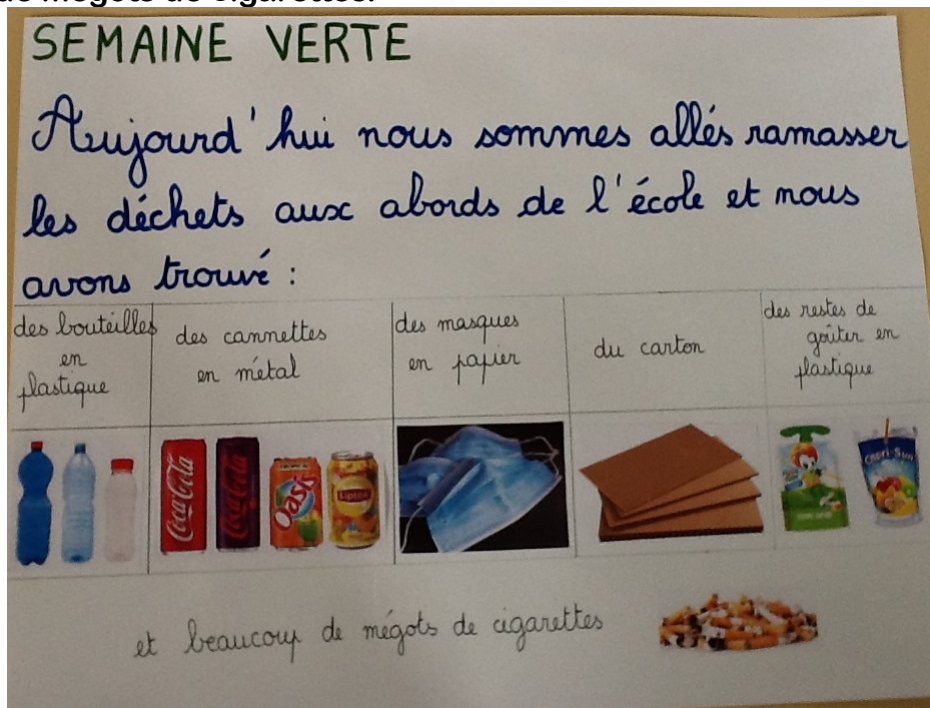 de mégots de cigarettes.
SEMAINE VERTE
Aujourd'hui nous sommes allés ramasser
les déchets aux abords de l'école et nous
avons trouvé :
des bouteilles
en
plastique
des cannettes
en métal
des masques
en papier
du carton
des restes de
goûter en
plastique
Coca-Cola
Coca-Cola
TROPICAL
Oasis
Lipton
Capri-Sun
et beaucoup de mégots de cigarettes